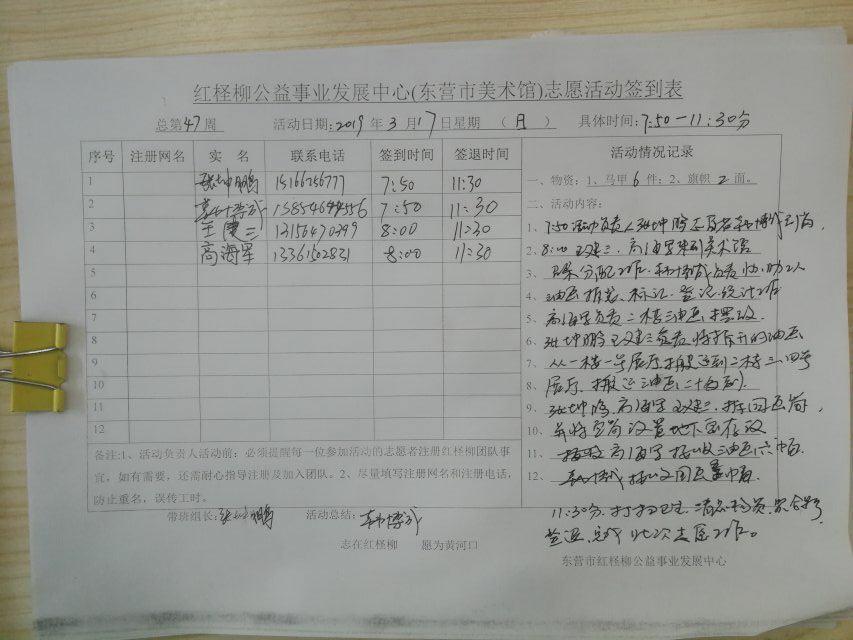 红柽柳公益事业发展中心(东营市美术馆)志愿活动签到表
总第47周 活动日期:2019年3月17日星期（日） 具体时间:7:50—11:30分
序号 注册网名 实 名 联系电话 签到时间 签退时间 活动情况记录
1 张坤鹏 15166256777 7:50 11:30
2 韩博武 7:50 11:30
3 王建三 13156470399 8:00 11:30
4 高海军 13361502831 8:00 11:30
5
6
7
8
9
10
11
12
一、物资：1、马甲6件；2、旗帜2面。
二、活动内容：
1、7:50活动负责人张坤鹏 韩博武到岗，
2、8:00王建三、高海军来到美术馆
3、分配工作，韩博武负责协助工人
4、油画拆装、标记、登记、统计工作
5、高海军负责二楼油画摆放.
6、张坤鹏王建三负责将拆开的油画
7、从一楼一号展厅搬运到二楼三、四号
8、展厅，搬运油画二十
9、张坤鹏、高海军王建三，拆国画筒，
10、并将空筒放置地下室存放
11、高海军 油画六十幅.
12、韩博武 国画 幅.
11:30分，打扫卫生，清点物资，集合
签退，完成此次志愿工作。
备注:1、活动负责人活动前：必须提醒每一位参加活动的志愿者注册红柽柳团队事
宜，如有需要，还需耐心指导注册及加入团队。2、尽量填写注册网名和注册电话，
防止重名，误传工时。
带班组长:张坤鹏 活动总结:韩博武
志在红柽柳 愿为黄河口
东营市红柽柳公益事业发展中心